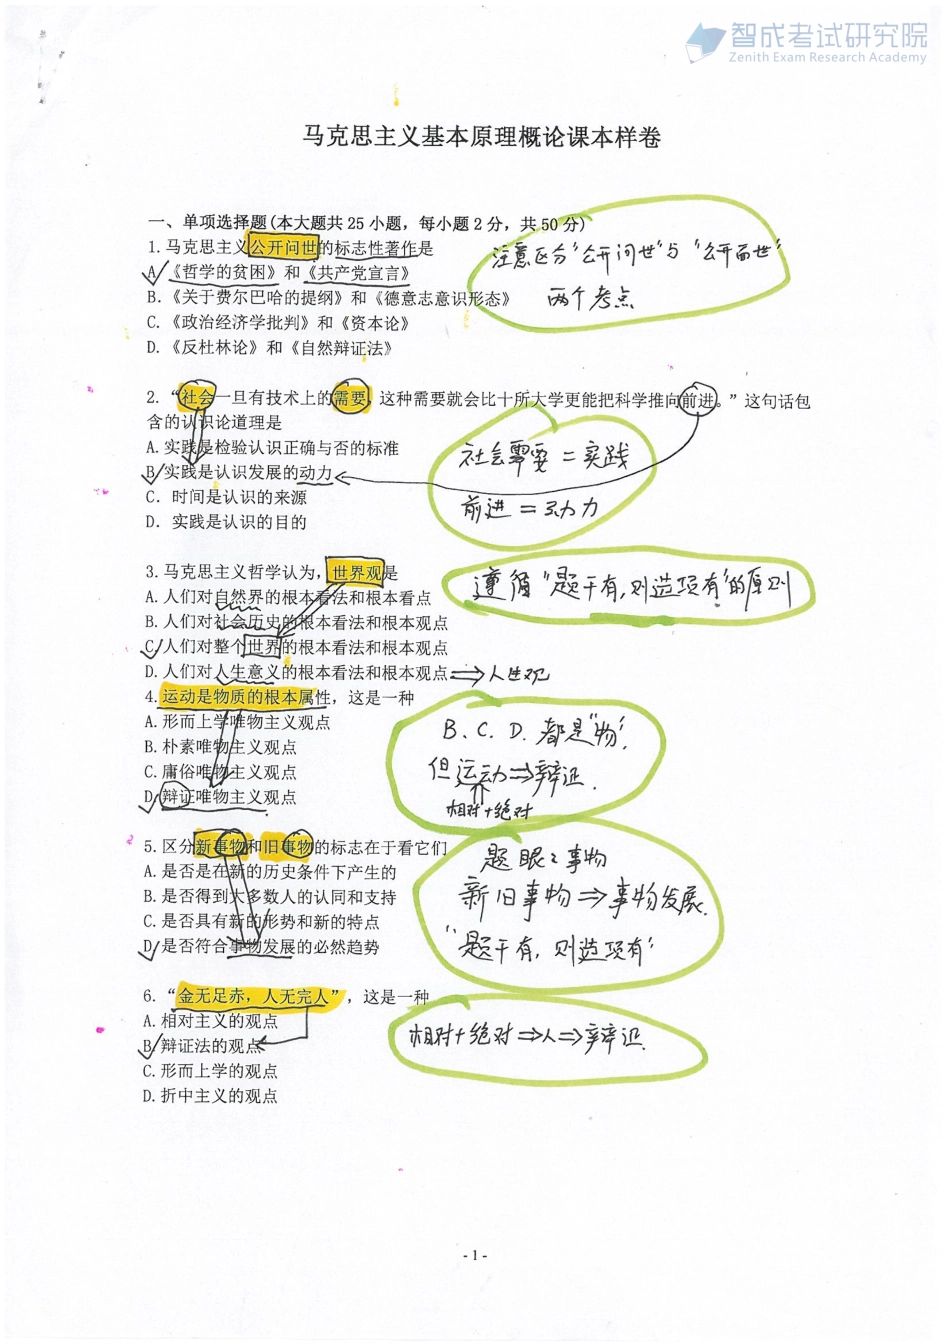 智成考试研究院
Zenith Exam Research Academy
马克思主义基本原理概论课本样卷
一、单项选择题(本大题共 25 小题，每小题 2 分，共 50 分)
1. 马克思主义公开问世的标志性著作是
A.《哲学的贫困》和《共产党宣言》
B.《关于费尔巴哈的提纲》和《德意志意识形态》
C.《政治经济学批判》和《资本论》
D.《反杜林论》和《自然辩证法》
注意区分“公开问世”与“公开面世”
两个考点
2. “社会一旦有技术上的需要，这种需要就会比十所大学更能把科学推向前进。”这句话包
含的认识论道理是
A. 实践是检验认识正确与否的标准
B. 实践是认识发展的动力
C. 时间是认识的来源
D. 实践是认识的目的
社会需要 = 实践
前进 = 动力
3. 马克思主义哲学认为，世界观是
A. 人们对自然界的根本看法和根本看点
B. 人们对社会历史的根本看法和根本观点
C. 人们对整个世界的根本看法和根本观点
D. 人们对人生意义的根本看法和根本观点 ⇒ 人生观
遵循“题干有,则选项有”的原则
4. 运动是物质的根本属性，这是一种
A. 形而上学唯物主义观点
B. 朴素唯物主义观点
C. 庸俗唯物主义观点
D. 辩证唯物主义观点
B、C、D. 都是“物”,
但运动⇒辩证.
相对+绝对
5. 区分新事物和旧事物的标志在于看它们
A. 是否是在新的历史条件下产生的
B. 是否得到大多数人的认同和支持
C. 是否具有新的形势和新的特点
D. 是否符合事物发展的必然趋势
题眼: 事物
新旧事物⇒事物发展.
“题干有, 则选项有”
6. “金无足赤，人无完人”，这是一种
A. 相对主义的观点
B. 辩证法的观点
C. 形而上学的观点
D. 折中主义的观点
相对+绝对⇒人⇒辩证.
- 1 -